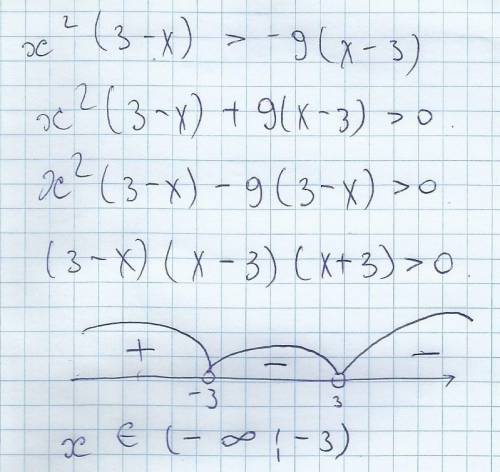 x² (3-x) > -9(x-3)
x²(3-x) + 9(x-3) > 0.
x²(3-x) - 9(3-x) > 0
(3-x)(x-3)(x+3) > 0.
+ - -
-3 3
x ∈ (-∞; -3)